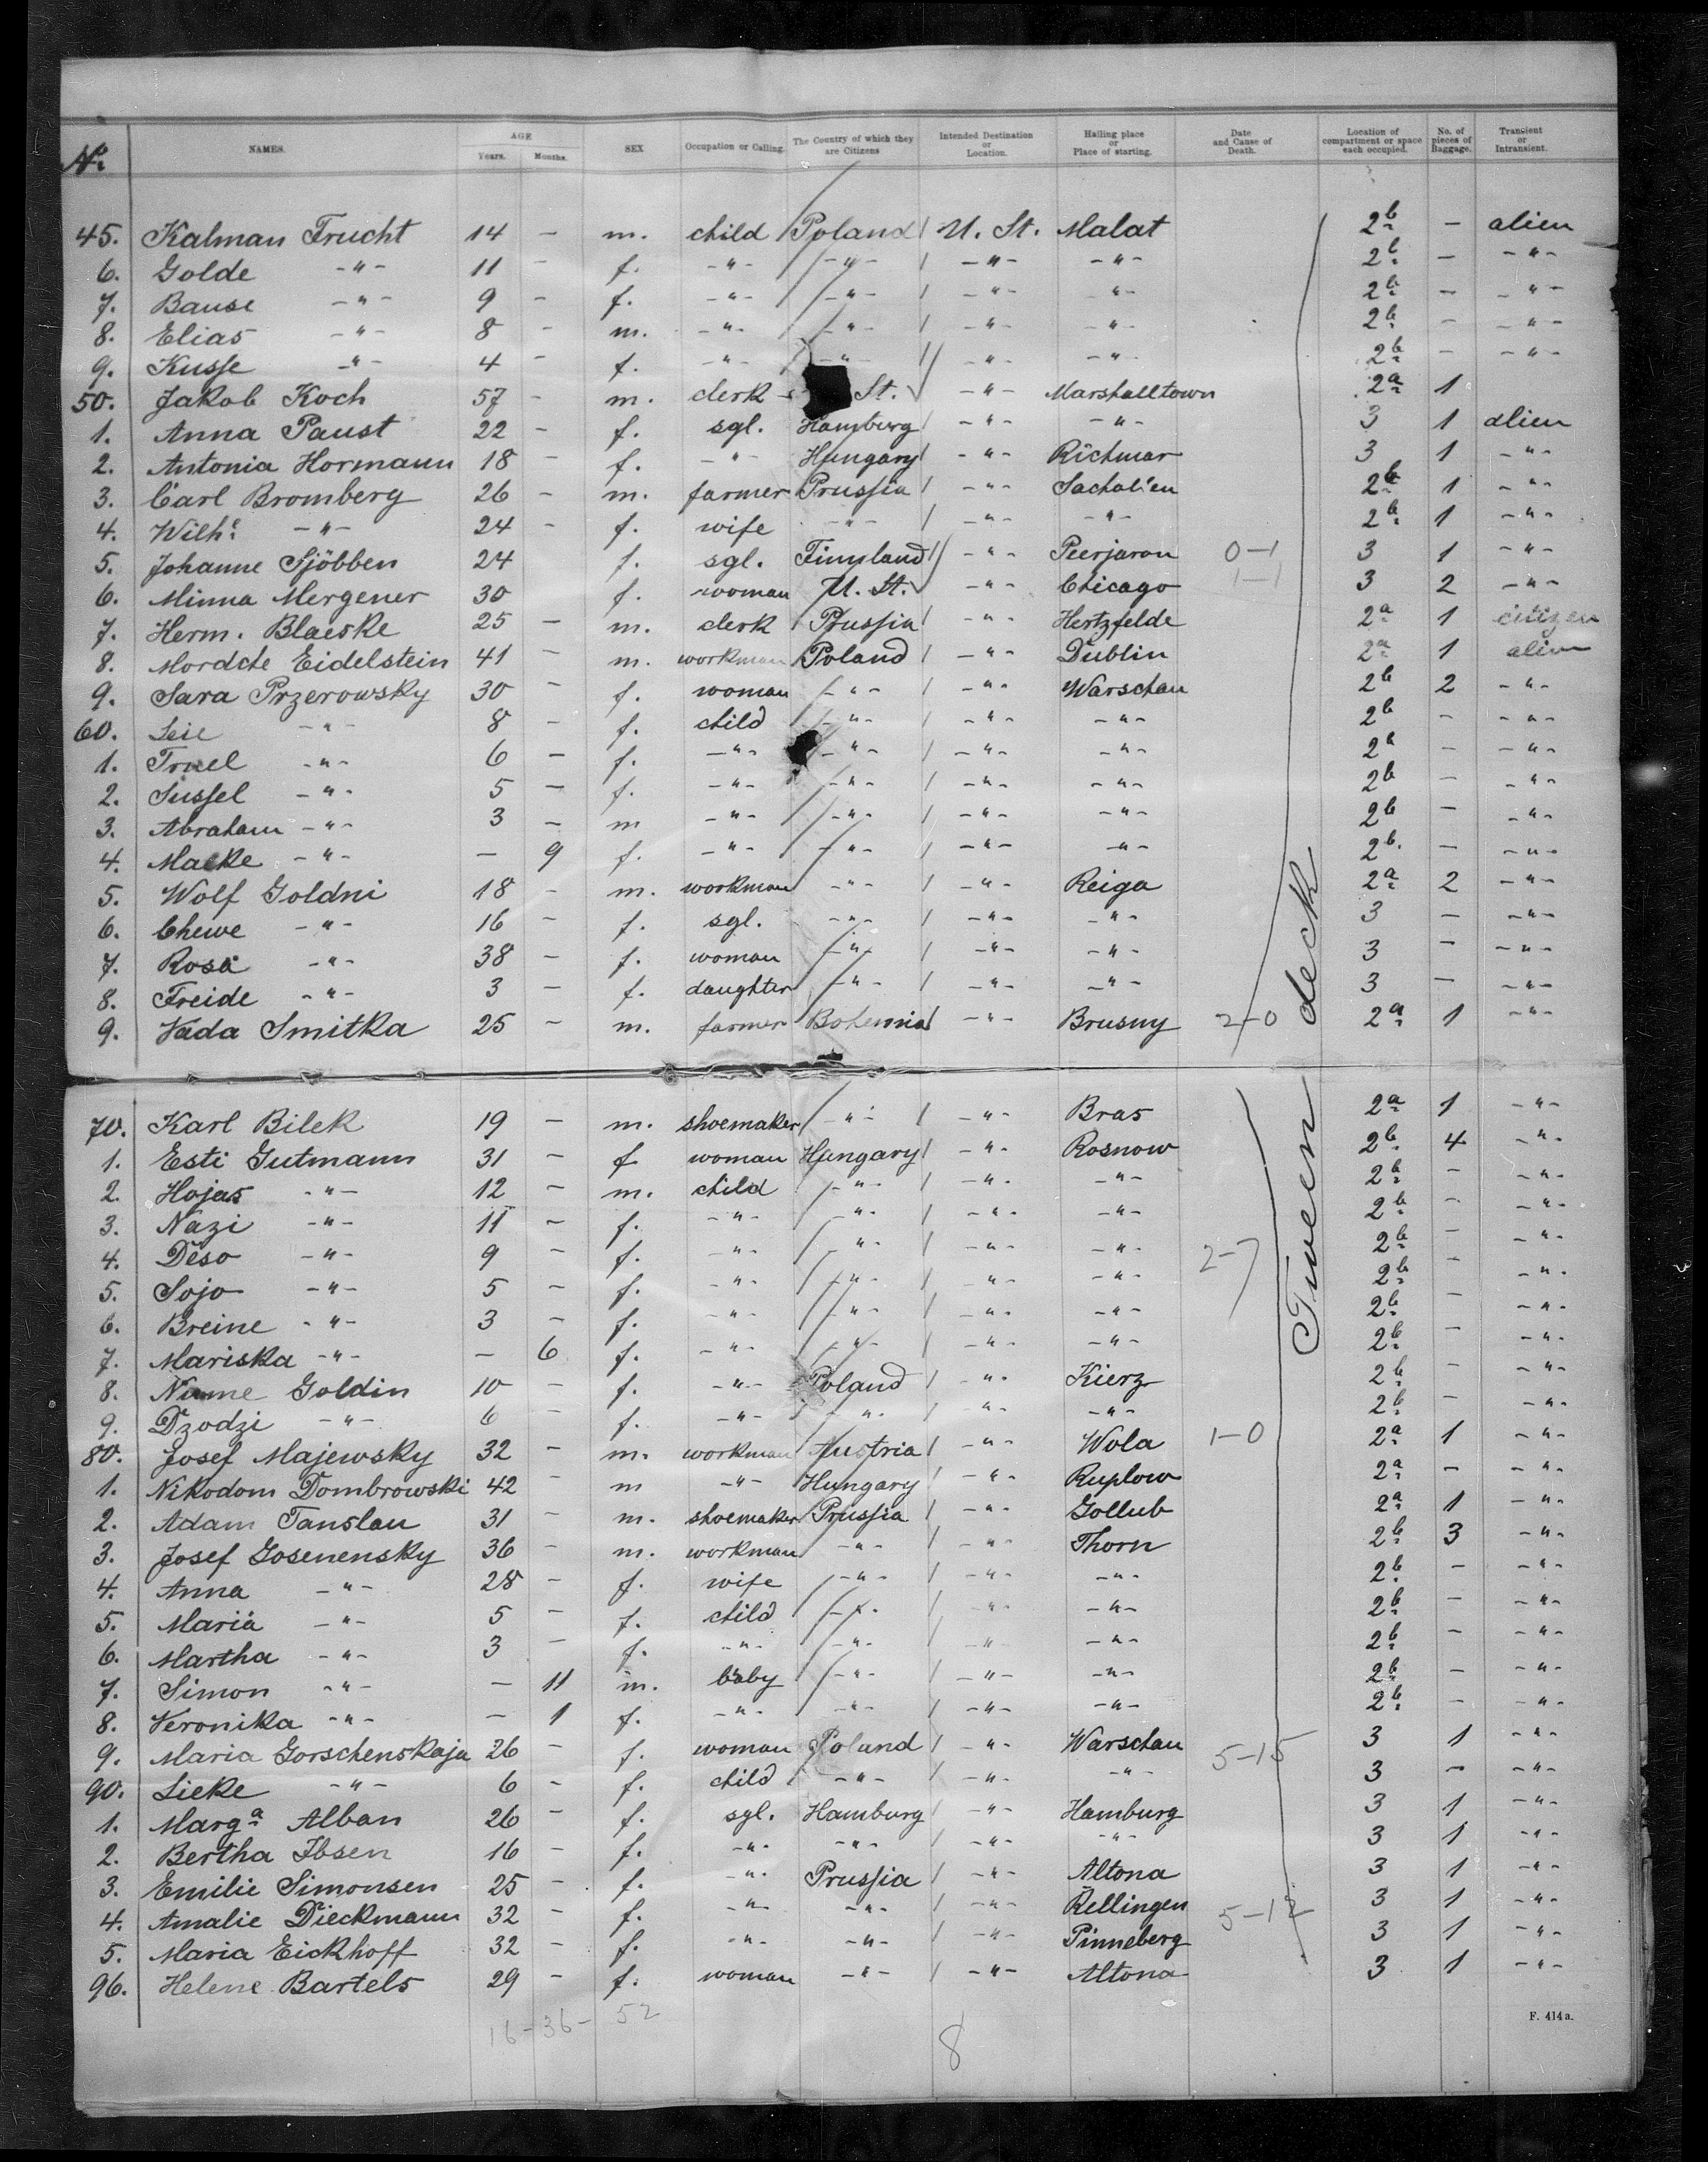 No. NAMES. AGE Years. Months. SEX Occupation or Calling. The Country of which they are Citizens Intended Destination or Location. Hailing place or Place of starting. Date and Cause of Death. Location of compartment or space each occupied. No. of pieces of Baggage. Transient or Intransient.
45. Kalman Frucht 14 - m. child Poland U. St. Malat 2b - alien
6. Golde -"- 11 - f. -"- -"- -"- -"- 2b - -"-
7. Bause -"- 9 - f. -"- -"- -"- -"- 2b - -"-
8. Elias -"- 8 - m. -"- -"- -"- -"- 2b - -"-
9. Kusse -"- 4 - f. -"- -"- -"- -"- 2b - -"-
50. Jakob Koch 57 - m. clerk St. -"- Marshalltown 2a 1
1. Anna Paust 22 - f. sgl. Hamburg -"- -"- 3 1 alien
2. Antonia Hormann 18 - f. -"- Hungary -"- Richmar 3 1 -"-
3. Carl Bromberg 26 - m. farmer Prussia -"- Sachalien 2b 1 -"-
4. Wilhe -"- 24 - f. wife -"- -"- -"- 2b 1 -"-
5. Johanne Sjöbben 24 f. sgl. Finnland -"- Peerjaron 0-1 3 1 -"-
6. Minna Mergener 30 f. woman U. St. -"- Chicago 1-1 3 2 -"-
7. Herm. Blaeske 25 - m. clerk Prussia -"- Hertzfelde 2a 1 citizen
8. Mordche Eidelstein 41 - m. workman Poland -"- Dublin 2a 1 alien
9. Sara Przerowsky 30 - f. woman -"- -"- Warschau 2b 2 -"-
60. Leie -"- 8 - f. child -"- -"- -"- 2b - -"-
1. Truel -"- 6 - f. -"- -"- -"- -"- 2b - -"-
2. Sussel -"- 5 - f. -"- -"- -"- -"- 2b - -"-
3. Abraham -"- 3 - m -"- -"- -"- -"- 2b - -"-
4. Macke -"- - 9 f. -"- -"- -"- -"- 2b. - -"-
5. Wolf Goldni 18 - m. workman -"- -"- Reiga 2a 2 -"-
6. Chewe -"- 16 - f. sgl. -"- -"- -"- 3 - -"-
7. Rosa -"- 38 - f. woman -"- -"- -"- 3 - -"-
8. Freide -"- 3 - f. daughter -"- -"- -"- 3 - -"-
9. Vada Smitka 25 - m. farmer Bohemia -"- Brusny 2-0 2a 1 -"-
Tween deck
70. Karl Bilek 19 - m. shoemaker -"- -"- Bras 2a 1 -"-
1. Esti Gutmann 31 - f woman Hungary -"- Rosnow 2b 4 -"-
2. Hojas -"- 12 - m. child -"- -"- -"- 2b - -"-
3. Nazi -"- 11 - f. -"- -"- -"- -"- 2b - -"-
4. Deso -"- 9 - f. -"- -"- -"- -"- 2-7 2b - -"-
5. Sojo -"- 5 - f. -"- -"- -"- -"- 2b - -"-
6. Breine -"- 3 - f. -"- -"- -"- -"- 2b - -"-
7. Mariska -"- - 6 f. -"- -"- -"- -"- 2b - -"-
8. Goldin 10 - f. -"- Poland -"- Kierz 2b - -"-
9. Dzodzi -"- 6 - f. -"- -"- -"- -"- 2b - -"-
80. Josef Majewsky 32 - m. workman Austria -"- Wola 1-0 2a 1 -"-
1. Nikodom Dombrowski 42 - m -"- Hungary -"- Ruplow 2a - -"-
2. Adam Tanslau 31 - m. shoemaker Prussia -"- Gollub 2a 1 -"-
3. Josef Gosenensky 36 - m. workman -"- -"- Thorn 2b 3 -"-
4. Anna -"- 28 - f. wife -"- -"- -"- 2b - -"-
5. Maria -"- 5 - f. child -"- -"- -"- 2b - -"-
6. Martha -"- 3 - f. -"- -"- -"- -"- 2b - -"-
7. Simon -"- - 11 m. baby -"- -"- -"- 2b - -"-
8. Veronika -"- - 1 f. -"- -"- -"- -"- 2b - -"-
9. Maria Gorschenskaja 26 - f. woman Poland -"- Warschau 5-15 3 1 -"-
90. Lieke -"- 6 - f. child -"- -"- -"- 3 - -"-
1. Marga Alban 26 - f. sgl. Hamburg -"- Hamburg 3 1 -"-
2. Bertha Ibsen 16 - f. -"- -"- -"- -"- 3 1 -"-
3. Emilie Simonsen 25 - f. -"- Prussia -"- Altona 3 1 -"-
4. Amalie Dieckmann 32 - f. -"- -"- -"- Rellingen 5-12 3 1 -"-
5. Maria Eickhoff 32 - f. -"- -"- -"- Pinneberg 3 1 -"-
96. Helene Bartels 29 - f. woman -"- -"- Altona 3 1 -"-
16-36- 52
8
F. 414a.